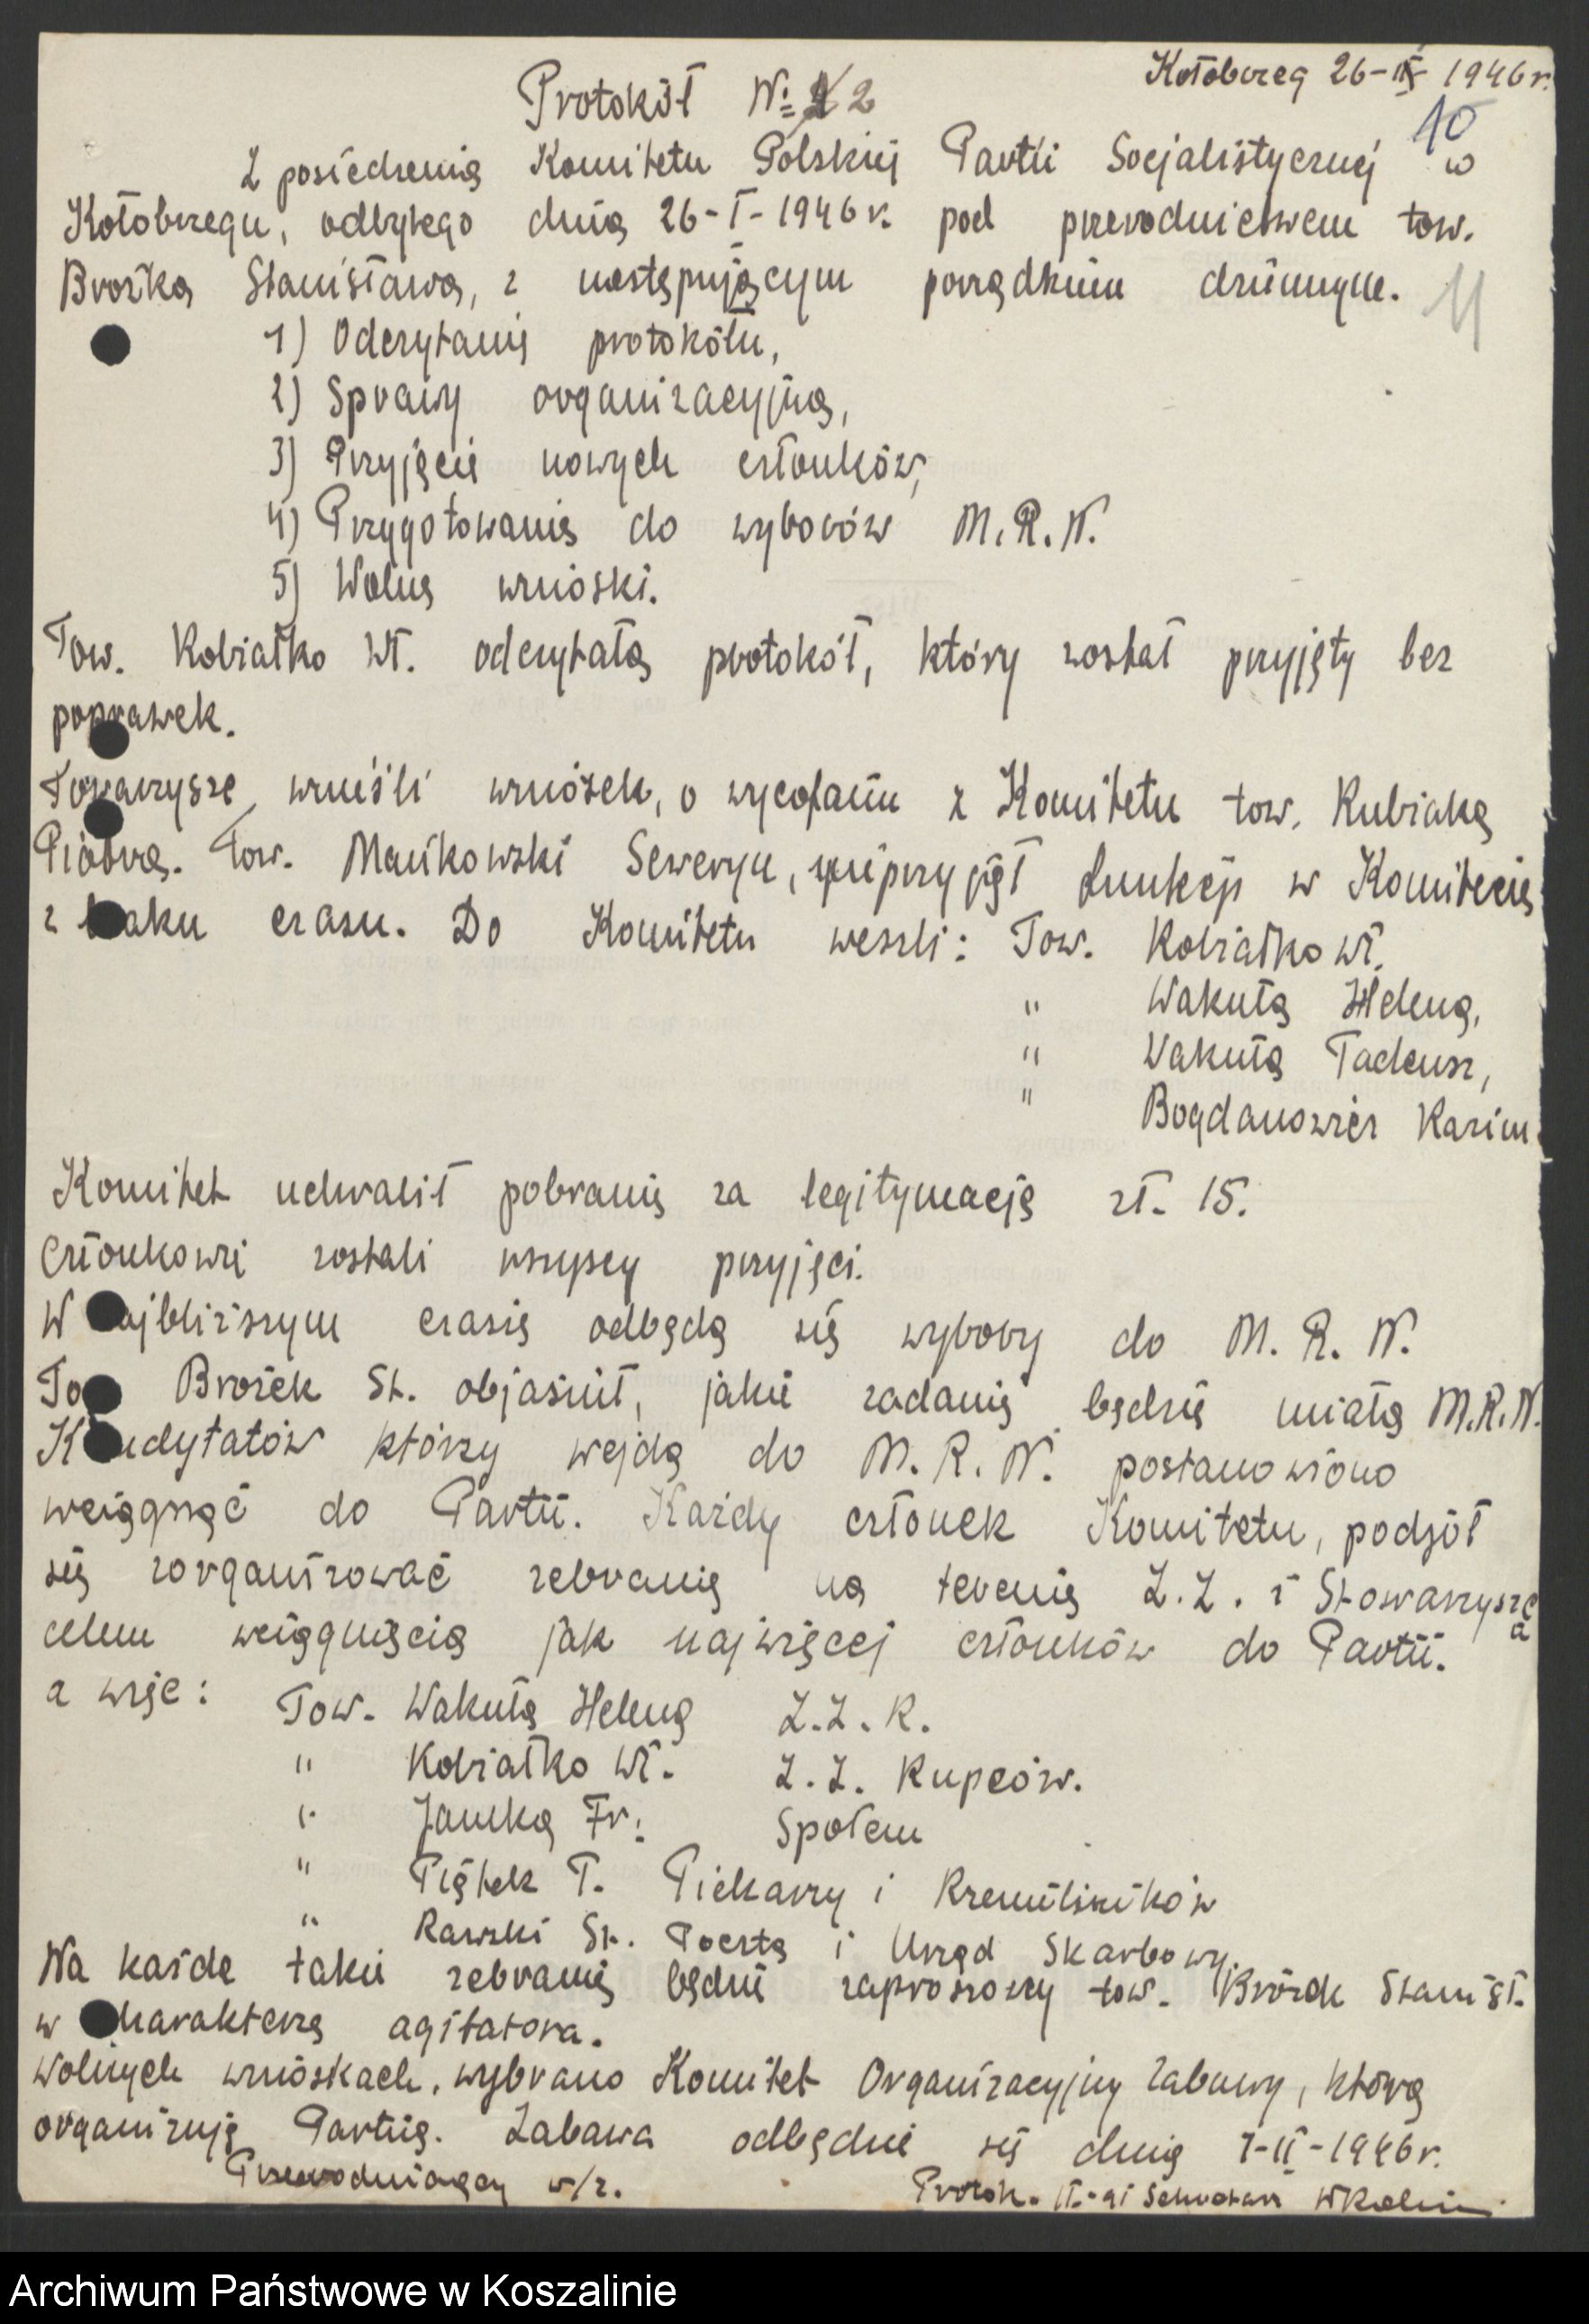 Kołobrzeg 26-II-1946r.
Protokół № 2
10
Z posiedzenia Komitetu Polskiej Partii Socjalistycznej w
Kołobrzegu, odbytego dnia 26-I-1946r. pod przewodnictwem tow.
Brożka Stanisława, z następującym porządkiem dziennym.
11
1) Odczytanie protokółu,
2) Sprawy organizacyjna,
3) Przyjęcie nowych członków,
4) Przygotowanie do wyborów M.R.N.
5) Wolne wnioski.
Tow. Kobiałko Wł. odczytała protokół, który został przyjęty bez
poprawek.
Towarzysze wnieśli wniosek, o wycofaniu z Komitetu tow. Kubiaka
Piotra. Tow. Mańkowski Seweryn, nieprzyjął funkcji w Komitecie
z braku czasu. Do Komitetu weszli: Tow. Kobiałko Wł.
" Wakuła Helena,
" Wakuła Tadeusz,
" Bogdanowicz Kazim.
Komitet uchwalił pobranie za legitymacje zł. 15.
Członkowie zostali wszyscy przyjęci.
W najbliższym czasie odbędą się wybory do M. R. N.
Tow Brożek St. objaśnił, jakie zadanie będzie miała M.R.N.
Kandytatów którzy wejdą do M. R. N. postanowiono
wciągnąć do Partii. Każdy członek Komitetu, podjół
się zorganizować zebranie na terenie Z.Z. i Stowarzysze
celem wciągnięcia jak najwięcej członków do Partii.
a więc: Tow. Wakuła Helena Z.Z.K.
" Kobiałko Wł. Z.Z. Kupców.
" Janeka Fr. Społem
" Piątek P. Piekarzy i Rzemieślników
" Rawski St. Poczta i Urząd Skarbowy.
Na każde takie zebranie będzie zaproszony tow. Brożek Stanisł.
w charakterze agitatora.
Wolnych wnioskach, wybrano Komitet Organizacyjny zabawy, którą
organizuje Partia. Zabawa odbędzie się dnia 1-II-1946r.
Przewodniczący w/z. Protok. II-gi Sekretarz
Archiwum Państwowe w Koszalinie